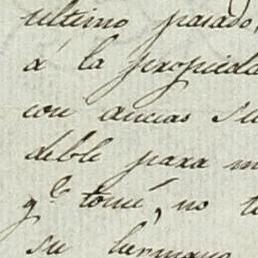 ultimo pasado,
á la propieda
con ancias su
deble para m
q.e tomé, no t
su hermano